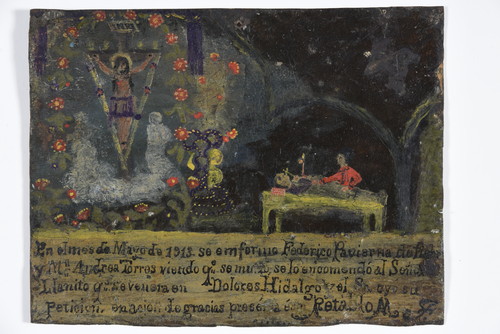 INRI
En el mes de Mayo de 1915. se emfermo Federico
y Mª Andrea Torres viendo qᵉ se muria se lo encomendo al Señor
Llanito qᵉ se venera en Dolores Hidalgo y el Sr. oyo su
Peticion, en acion de gracias presenta este Retablo